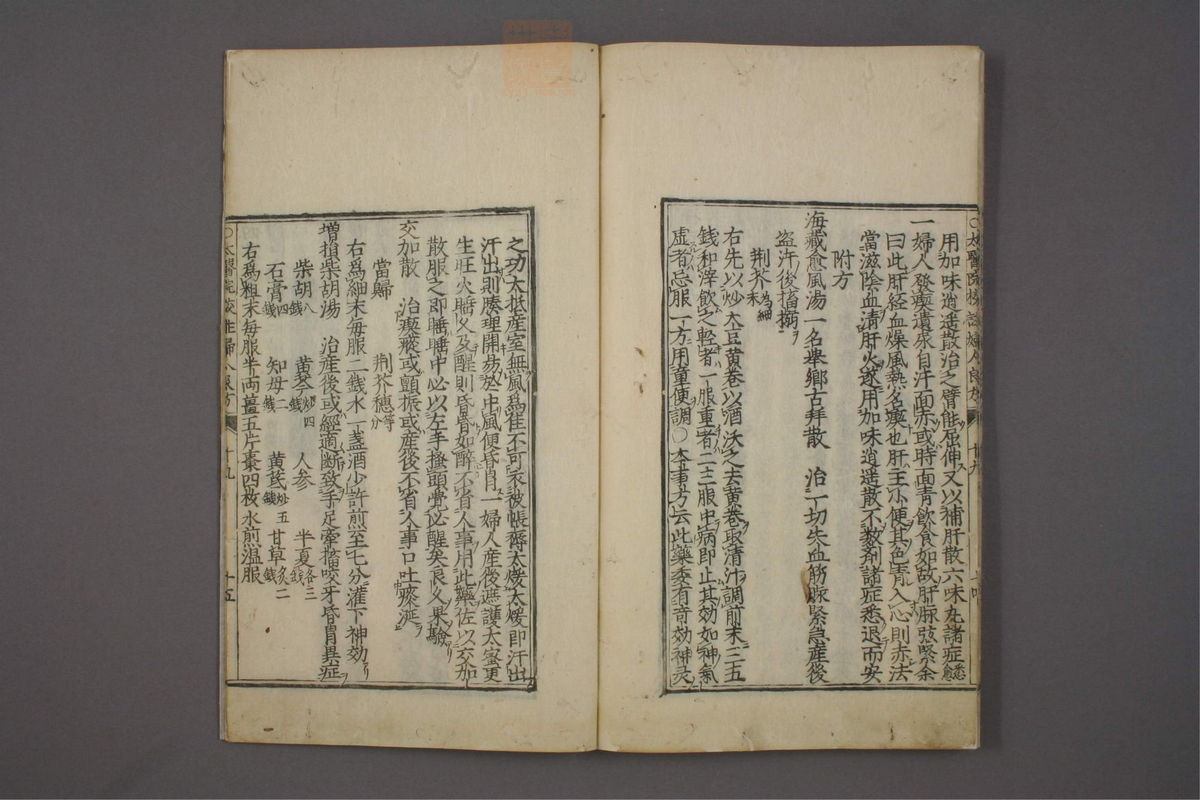 〇太醫院校註婦人良方　十九　十四
用加味逍遥散治之臂能屈伸又以補肝散六味丸諸症悉愈
一婦人發瘈遺尿自汗面赤或時面青飲食如故肝脉弦緊余
曰此肝経血燥風熱名瘈也肝主小便其色青入心則赤法
當滋陰血清肝火遂用加味逍遥散不数剤諸症悉退而安
附方
海藏愈風湯一名舉郷古拜散　治一切失血筋脉緊急産後
盗汗後搐搦
荊芥為細末
右先以炒大豆黄巻以酒沃之去黄巻取清汁調前末三五
錢和滓飲之輕者一服重者二三服中病即止其効如神氣
虚者忌服一方用童便調〇本事方云此藥委有竒効神灵
之功大抵産室無風爲佳不可衣被帳褥太煖太煖即汗出
汗出則腠理開易於中風便昏冐一婦人産後遮護太宻更
生旺火睡久及醒則昏昏如醉不省人事用此藥佐以交加
散服之即睡睡中必以左手搔頭覺必醒矣良久果驗
交加散　治瘈瘲或顫振或産後不省人事口吐痰涎
當歸　荊芥穂等分
右爲細末毎服二錢水一盞酒少許煎至七分灌下神効
増損柴胡湯　治産後或經適断致手足牽搐咬牙昏冐異症
柴胡八錢　黄芩炒四錢　人参　半夏各三錢
石膏四錢　知母二錢　黄茋炒五錢　甘草炙二錢
右爲粗末毎服半両薑五片棗四枚水煎温服
十九　十五